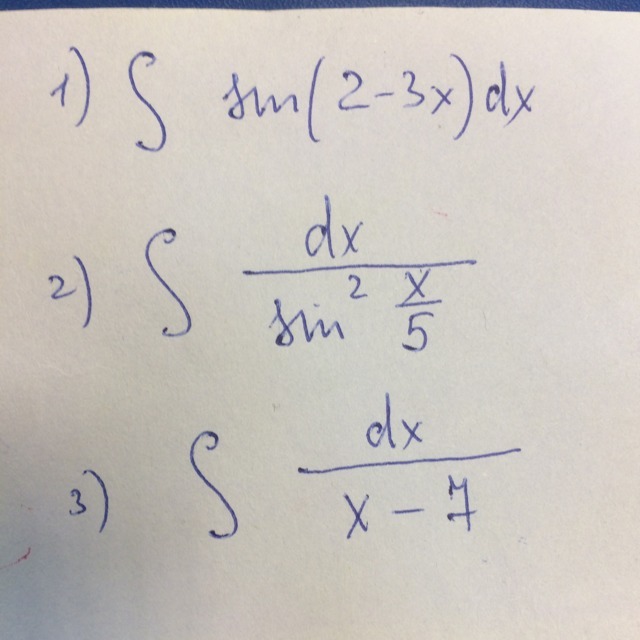 1) ∫ sin(2-3x)dx
2) ∫ dx / sin² x/5
3) ∫ dx / x-7